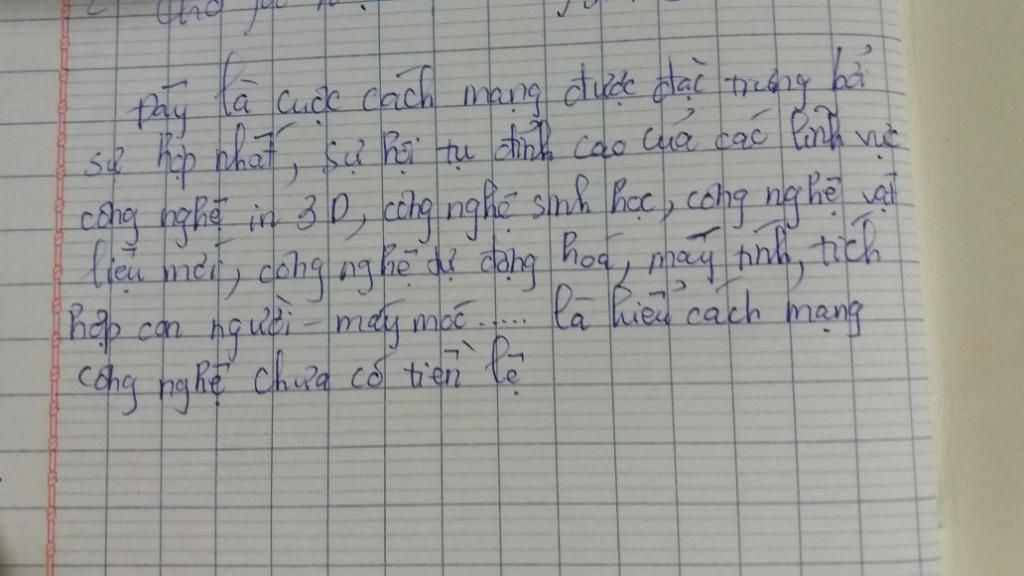 Đây là cuộc cách mạng được đặc trưng bởi
sự hợp nhất, sự hội tụ đỉnh cao của các lĩnh vực
công nghệ in 3D, công nghệ sinh học, công nghệ vật
liệu mới, công nghệ tự động hoá, máy tính, tích
hợp con người - máy móc..... là kiểu cách mạng
công nghệ chưa có tiền lệ